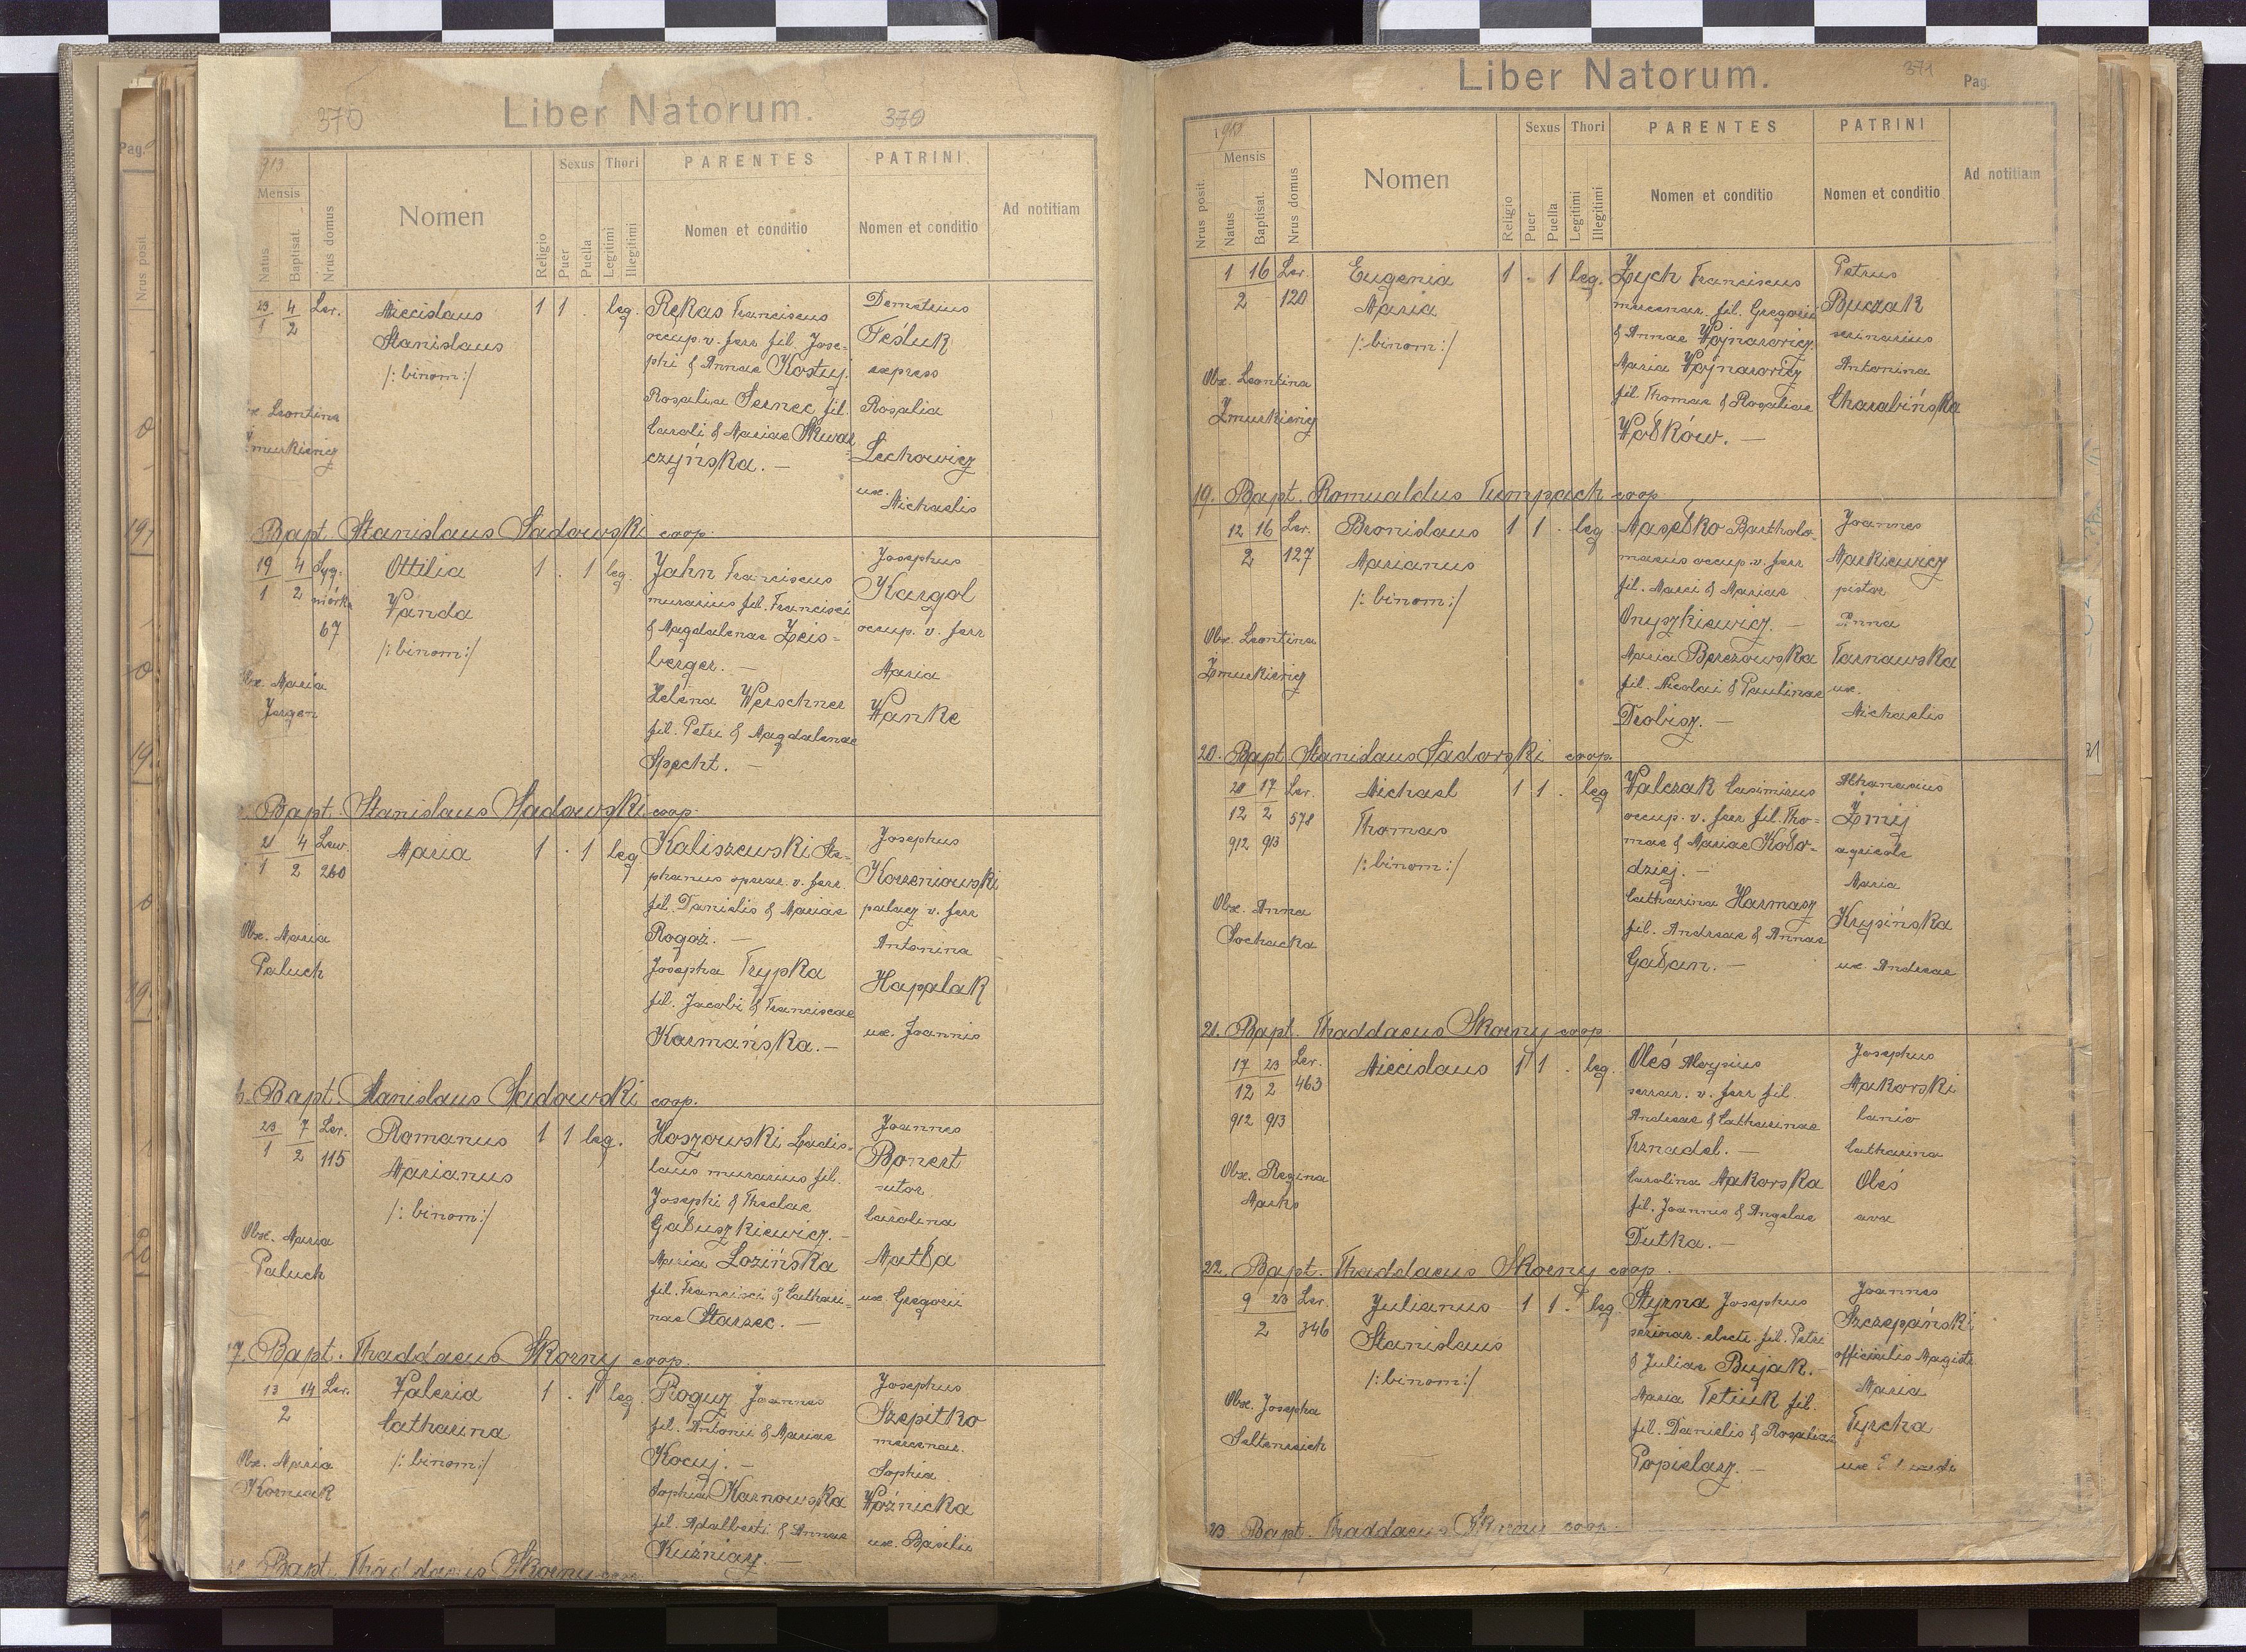 370
Liber Natorum.
370
913
Mensis
Natus
Baptisat.
Nrus domus
Nomen
Religio
Sexus
Puer
Puella
Thori
Legitimi
Illegitimi
PARENTES
Nomen et conditio
PATRINI
Nomen et conditio
Ad notitiam
23 4 Ler. Miecislaus 1 1 . leg. Rękas Franciscus Demetrius
1 2 Stanislaus occup. v. ferr fil. Jose- Feśluk
/: binom :/ phi & Annae Kostuj. express
Rosalia Sernec fil. Rosalia
Obx. Leontina Caroli & Mariae Skwar Lechowicz
Żmurkiewicz czyńska. — ux.
Michaelis
Bapt. Stanislaus Sadowski coop.
19 4 Syg- Ottilia 1 . 1 leg. Jahn Franciscus Josephus
1 2 niówka Vanda murarius fil. Francisci Kargol
67 /: binom :/ & Magdalenae Zeis- occup. v. ferr
berger. — Maria
Obx. Maria Helena Werschner Wanke
Jorgen fil. Petri & Magdalenae
Specht. —
Bapt. Stanislaus Sadowski coop.
21 4 Lew. Maria 1 . 1 leg Kaliszewski Ste- Josephus
1 2 260 phanus operar. v. ferr. Korzeniowski
fil. Danielis & Mariae palacz v. ferr
Obx. Maria Rogoż. — Antonina
Paluch Josepha Trypka Happlak
fil. Jacobi & Franciscae ux. Joannis
Karmańska. —
6. Bapt. Stanislaus Sadowski coop.
23 7 Ler. Romanus 1 1 leg. Hoszowski Ladis- Joannes
1 2 115 Marianus laus murarius fil. Bonert
/: binom :/ Josephi & Theclae sutor
Gałuszkiewicz. — Carolina
Obx. Maria Maria Lozińska Matła
Paluch fil. Francisci & Cathari- ux. Gregorii
nae Starzec. —
17. Bapt. Thaddaeus Skorny coop.
13 14 Ler. Valeria 1 . 1 leg Roguz Joannes Josephus
2 Catharina fil. Antonii & Mariae Szepitko
/: binom :/ Kocuj. — mercenar.
Obx. Maria Sophia Karnowska Sophia
Korniak fil. Adalberti & Annae Woźnicka
Kuźniar. — ux. Basilii
Bapt. Thaddaeus Skorny coop.
Liber Natorum.
371
Pag.
1913
Nrus posit.
Mensis
Natus
Baptisat.
Nrus domus
Nomen
Religio
Sexus
Puer
Puella
Thori
Legitimi
Illegitimi
PARENTES
Nomen et conditio
PATRINI
Nomen et conditio
Ad notitiam
1 16 Ler. Eugenia 1 . 1 leg. Zych Franciscus Petrus
2 120 Maria mercenar. fil. Gregorii Buczak
/: binom :/ & Annae Wojnarowicz. serinarius
Obx. Leontina Maria Wojnarowicz Antonina
Żmurkiewicz fil. Thomae & Rosaliae Charabińska
Wołków. —
19. Bapt. Romualdus Tumpach coop
12 16 Ler. Bronislaus 1 1 . leg Masełko Bartholo- Joannes
2 127 Marianus maeus occup. v. ferr Markiewicz
/: binom :/ fil. Marci & Mariae pistor
Onyszkiewicz. — Anna
Obx. Leontina Maria Berezowska Tarnawska
Żmurkiewicz fil. Nicolai & Paulinae ux.
Drobisz. — Michaelis
20. Bapt. Stanislaus Sadowski coop.
20 17 Ler. Michael 1 1 . leg Walczak Casimirus Athanasius
12 2 578 Thomas occup. v. ferr fil. Tho- Żmij
912 913 /: binom :/ mae & Mariae Koło- agricola
dziej. — Maria
Obx. Anna Catharina Harmasz Krypińska
Sochacka fil. Andreae & Annae ux. Andreae
Gałan. —
21. Bapt. Thaddaeus Skorny coop.
17 23 Ler. Miecislaus 1 1 . leg. Oleś Aloysius Josephus
12 2 463 serrar. v. ferr fil. Makorski
912 913 Andreae & Catharinae lanio
Trznadel. — Catharina
Obx. Regina Carolina Makorska Oleś
Marks fil. Joannis & Angelae ava
Dutka. —
22. Bapt. Thaddaeus Skorny coop.
9 23 Ler. Julianus 1 1 . leg. Styrna Josephus Joannes
2 346 Stanislaus serinar. electi. fil. Petri Szczepański
/: binom :/ & Juliae Bujak. — officialis Magistr.
Obx. Josepha Maria Tetiuk fil. Maria
Seltenreich fil. Danielis & Rosaliae Tyrcha
Popielarz. — ux
23. Bapt. Thaddaeus Skorny coop.